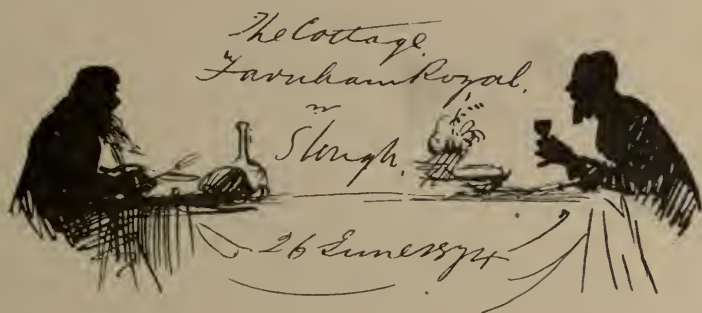 The Cottage,
Farnham Royal,
nr
Slough.
26 June 1874